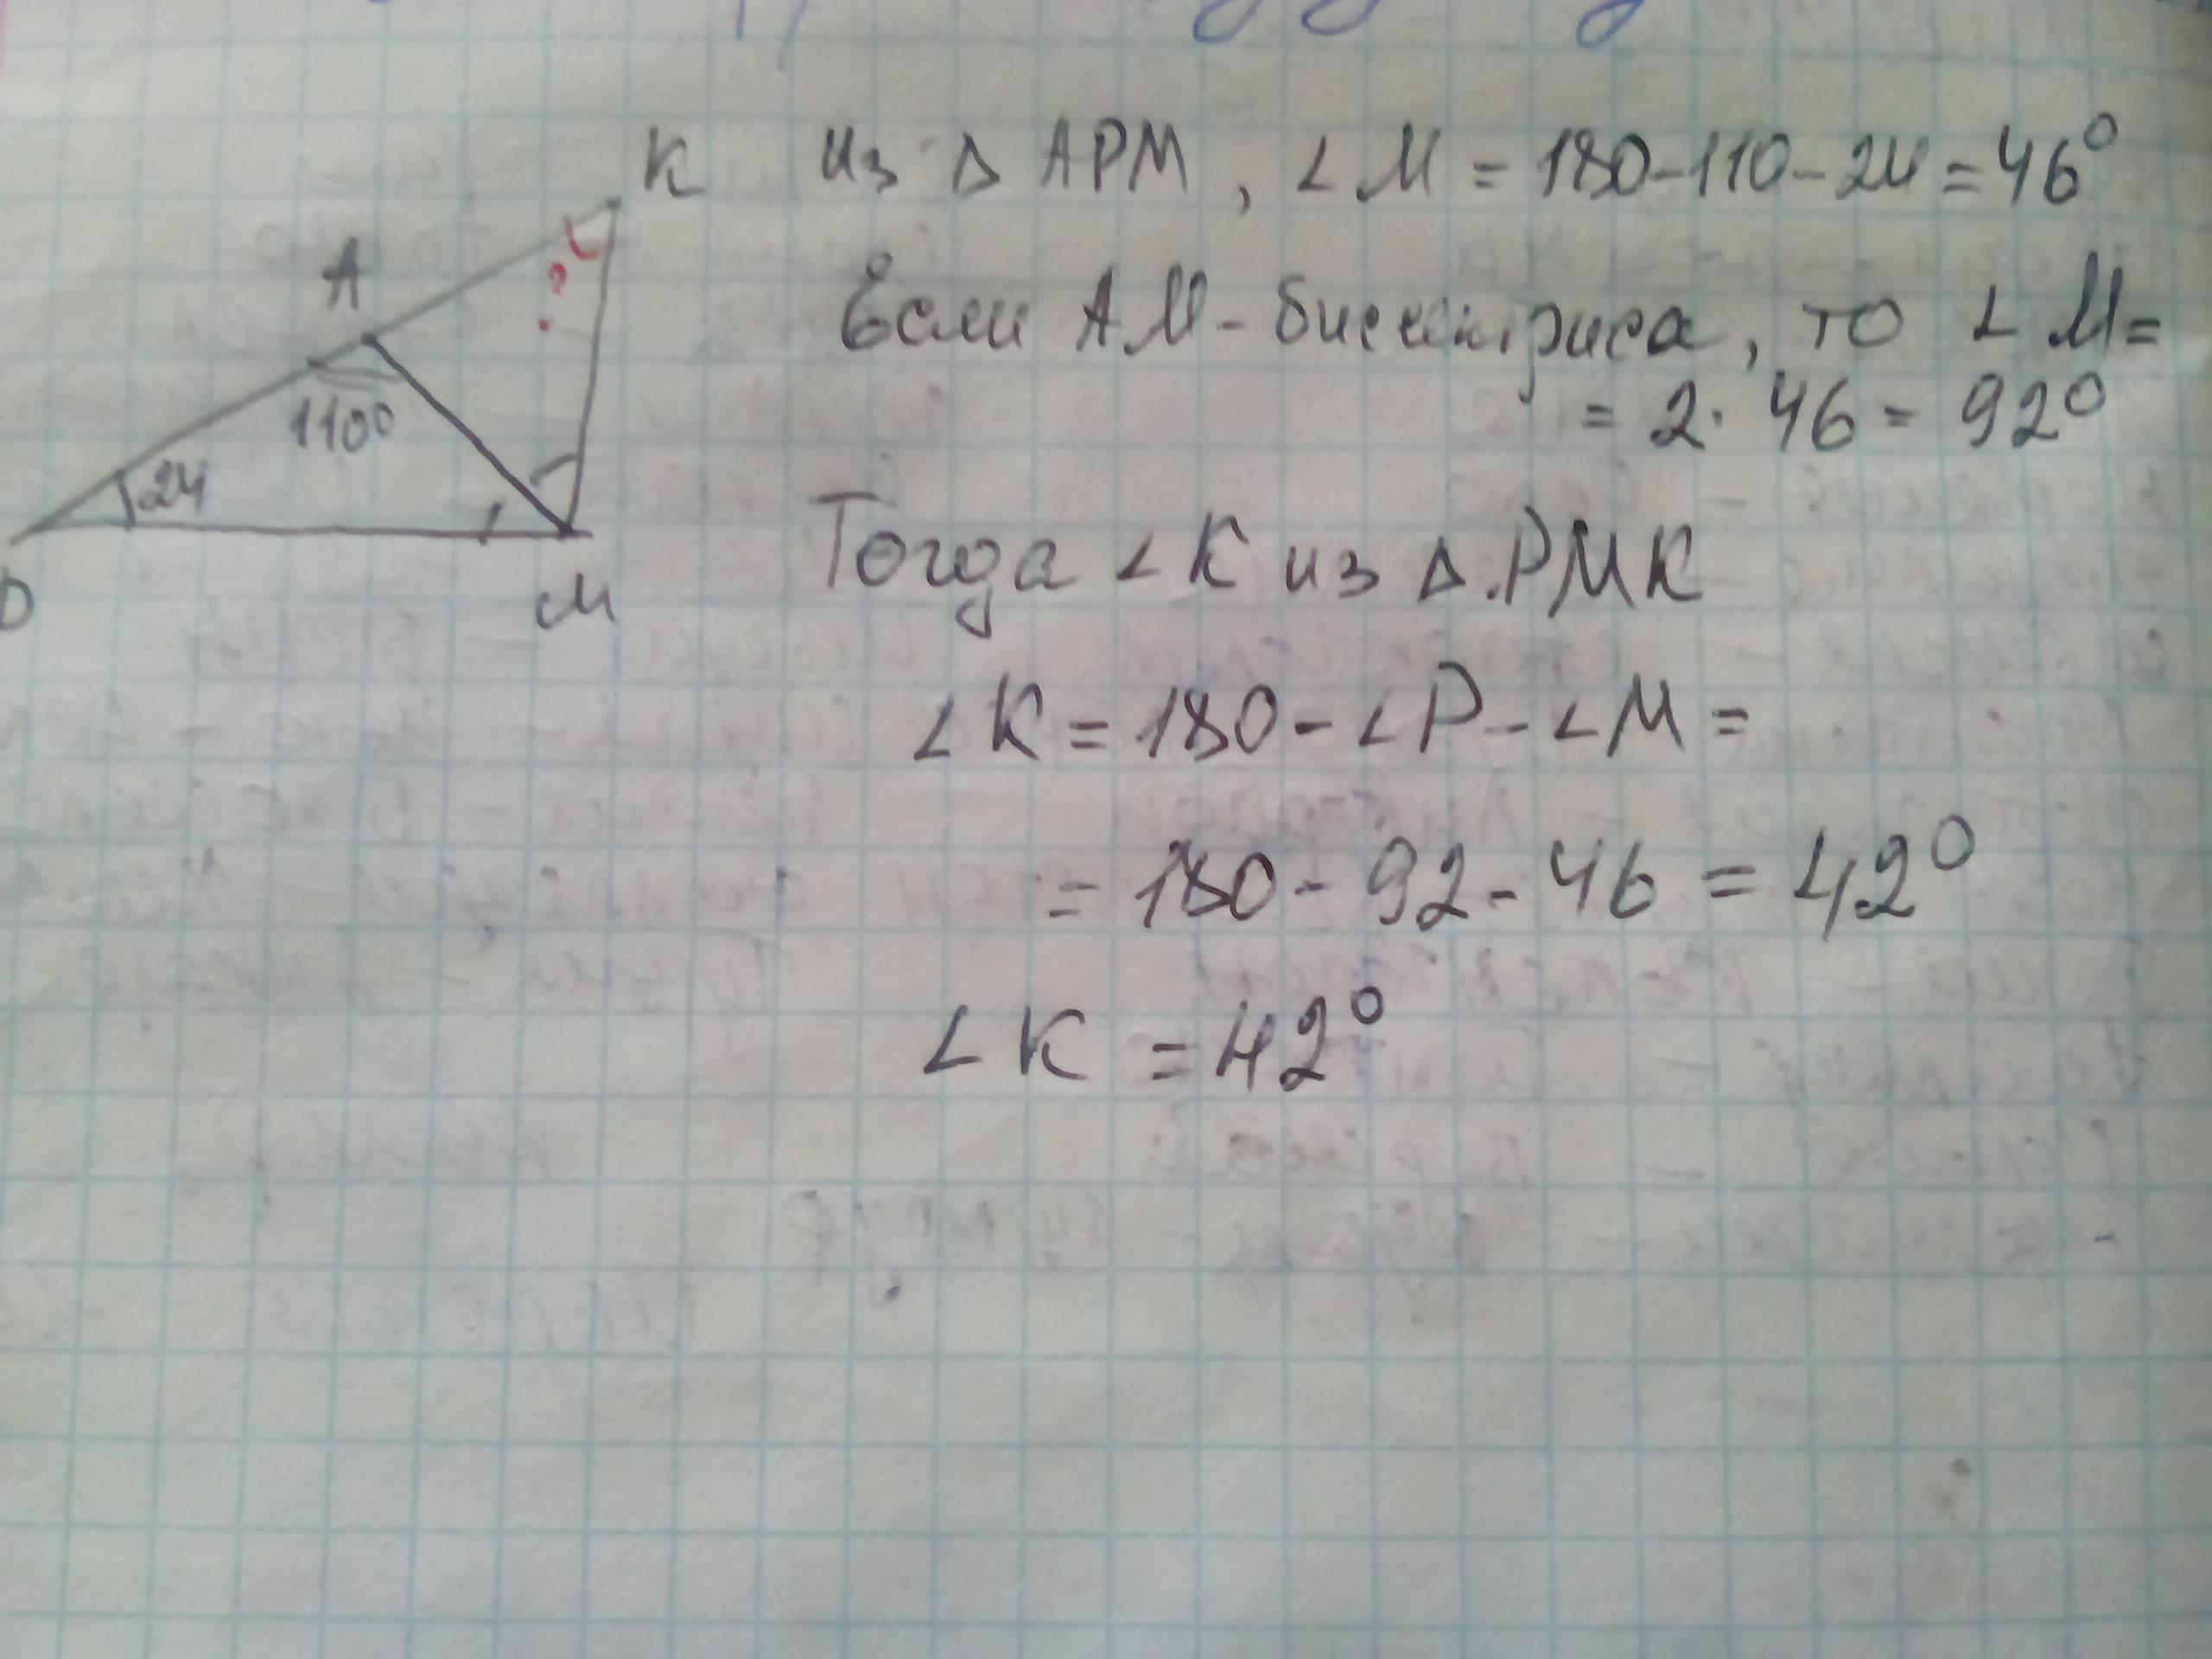 К
А
110°
24
М
?
из Δ АРМ, ∠М = 180-110-24 = 46°
Если АМ - биссектриса, то ∠М =
= 2 · 46 = 92°
Тогда ∠К из Δ РМК
∠К = 180 - ∠Р - ∠М =
= 180 - 92 - 46 = 42°
∠К = 42°